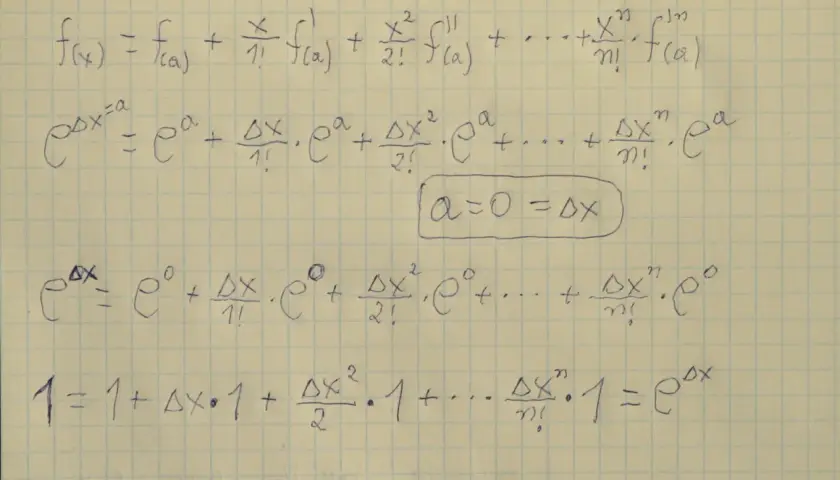 f(x) = f(a) + x/1! f'(a) + x²/2! f''(a) + ··· + xⁿ/n! · f'ⁿ(a)
e^(Δx=a) = e^a + Δx/1! · e^a + Δx²/2! · e^a + ··· + Δxⁿ/n! · e^a
a = 0 = Δx
e^Δx = e⁰ + Δx/1! · e⁰ + Δx²/2! · e⁰ + ··· + Δxⁿ/n! · e⁰
1 = 1 + Δx · 1 + Δx²/2 · 1 + ··· Δxⁿ/n! · 1 = e^Δx